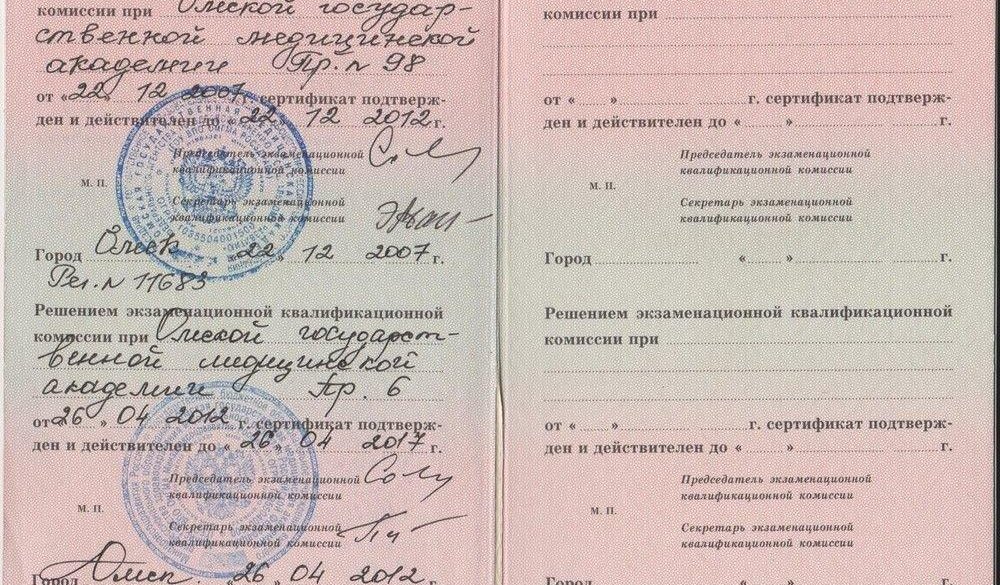 комиссии при Омской государ-
ственной медицинской
академии Пр. № 98
от «22» 12 2007 г. сертификат подтверж-
ден и действителен до «22» 12 2012 г.
Председатель экзаменационной
квалификационной комиссии
М. П.
Секретарь экзаменационной
квалификационной комиссии
Город Омск «22» 12 2007 г.
Рег. № 11683
Решением экзаменационной квалификационной
комиссии при Омской государст-
венной медицинской
академии Пр. 6
от «26» 04 2012 г. сертификат подтверж-
ден и действителен до «26» 04 2017 г.
Председатель экзаменационной
квалификационной комиссии
М. П.
Секретарь экзаменационной
квалификационной комиссии
Город Омск «26» 04 2012 г.
комиссии при
от « » г. сертификат подтверж-
ден и действителен до « » г.
Председатель экзаменационной
квалификационной комиссии
М. П.
Секретарь экзаменационной
квалификационной комиссии
Город « » г.
Решением экзаменационной квалификационной
комиссии при
от « » г. сертификат подтверж-
ден и действителен до « » г.
Председатель экзаменационной
квалификационной комиссии
М. П.
Секретарь экзаменационной
квалификационной комиссии
Город « » г.